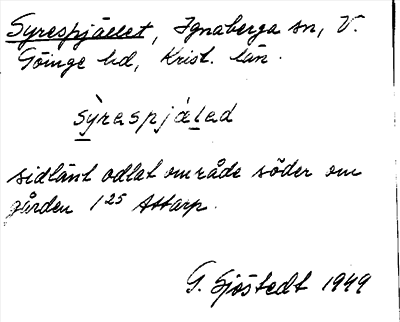 Syrespjället, Ignaberga sn, V.
Göinge hd, Krist. län.
sỳrespjæ̀led
sidlänt odlat område söder om
gården 1²⁵ Attarp.
G. Sjöstedt 1949